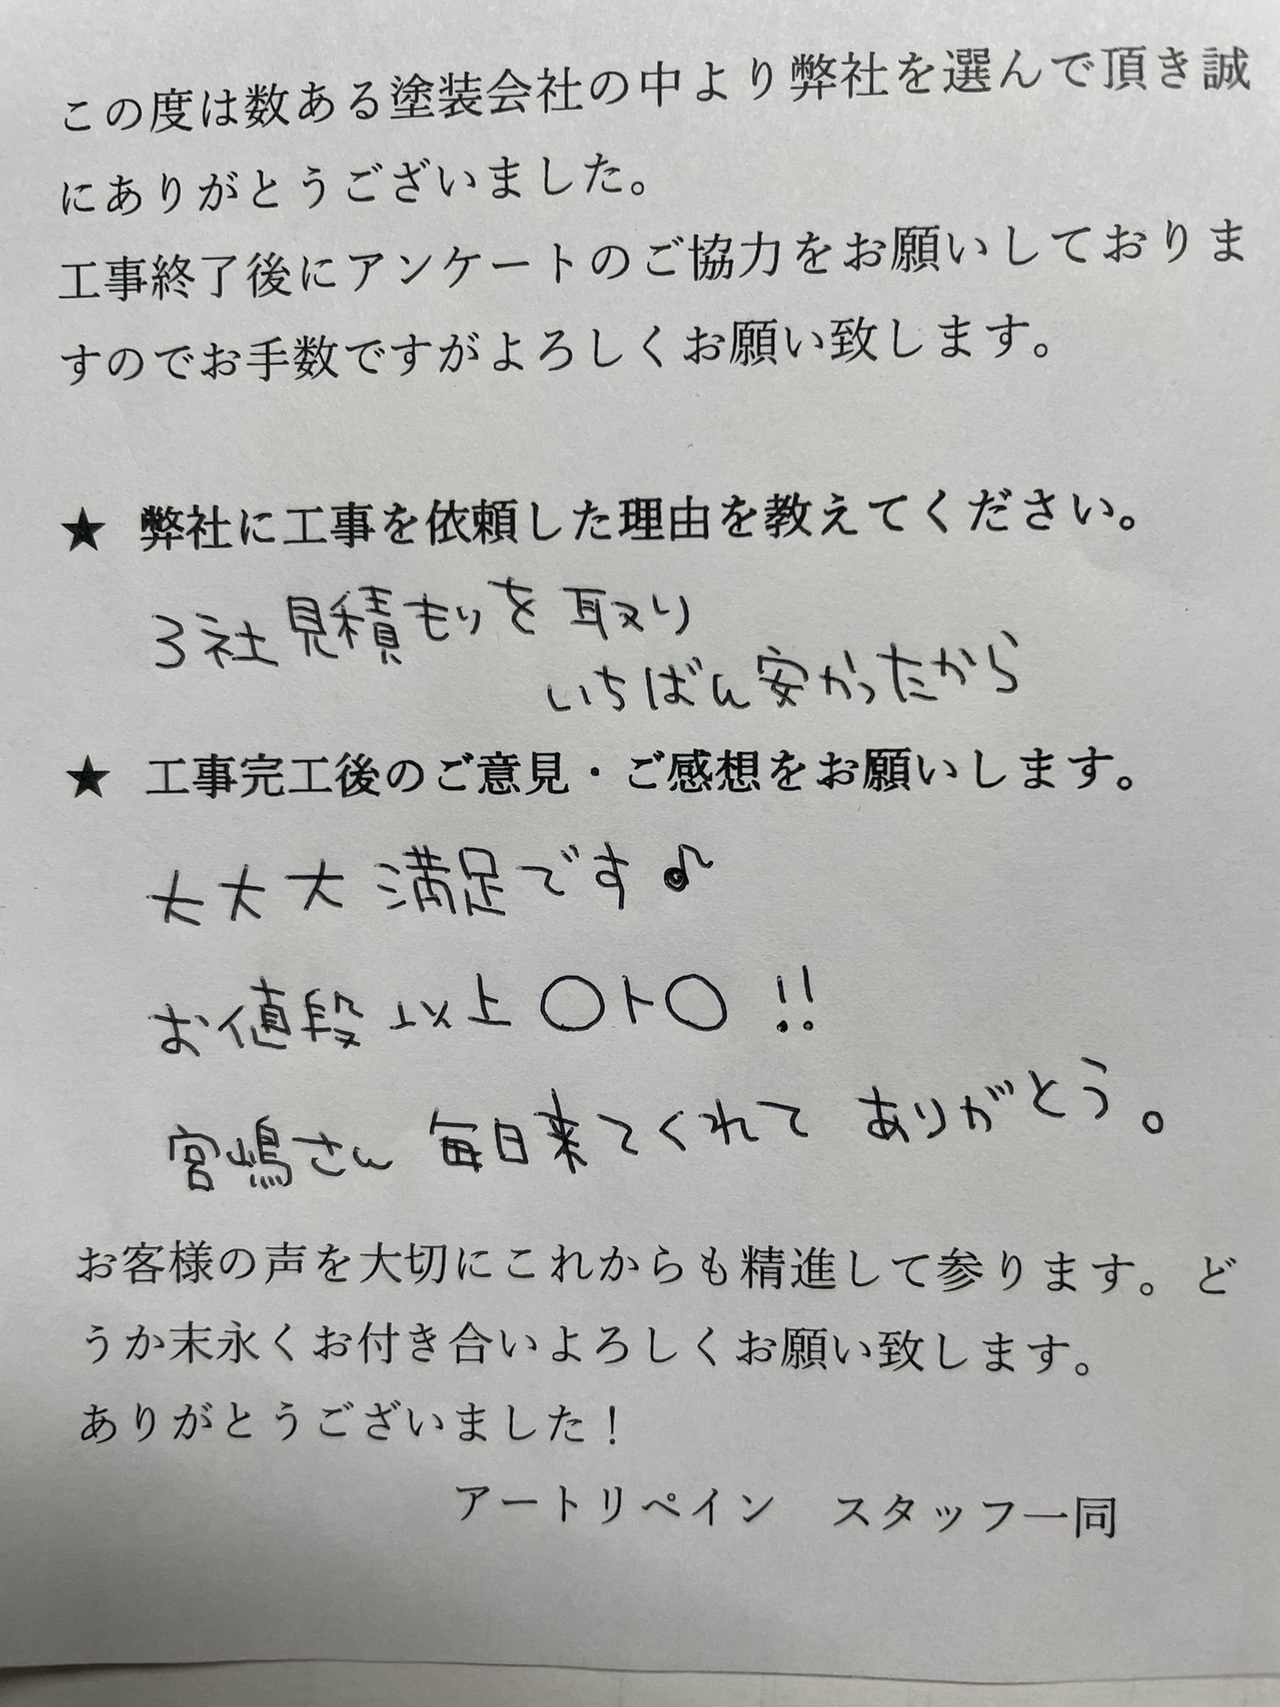 この度は数ある塗装会社の中より弊社を選んで頂き誠
にありがとうございました。
工事終了後にアンケートのご協力をお願いしておりま
すのでお手数ですがよろしくお願い致します。
★ 弊社に工事を依頼した理由を教えてください。
3社見積もりを取り
いちばん安かったから
★ 工事完工後のご意見・ご感想をお願いします。
大大大満足です♪
お値段以上〇ト〇!!
宮嶋さん 毎日来てくれて ありがとう。
お客様の声を大切にこれからも精進して参ります。ど
うか末永くお付き合いよろしくお願い致します。
ありがとうございました！
アートリペイン　スタッフ一同